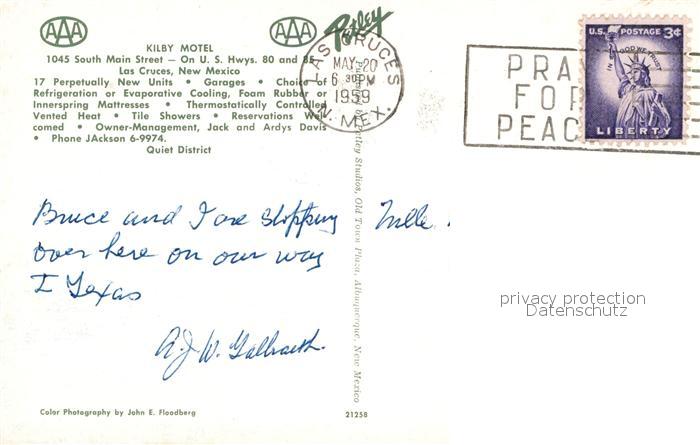 AAA AAA Petley
KILBY MOTEL
1045 South Main Street — On U. S. Hwys. 80 and 85
Las Cruces, New Mexico
17 Perpetually New Units • Garages • Choice
Refrigeration or Evaporative Cooling, Foam Rubber or
Innerspring Mattresses • Thermostatically Controlled
Vented Heat • Tile Showers • Reservations Wel-
comed • Owner-Management, Jack and Ardys Davis
• Phone JAckson 6-9974.
Quiet District
LAS CRUCES
MAY 20
6 30 PM
1959
N. MEX.
PRAY
FOR
PEACE
U.S. POSTAGE 3¢
IN GOD WE TRUST
LIBERTY
Bruce and I are stopping
over here on our way
I Texas
A. J. W. Galbraith.
Petley Studios, Old Town Plaza, Albuquerque, New Mexico
privacy protection
Datenschutz
Color Photography by John E. Floodberg
21258